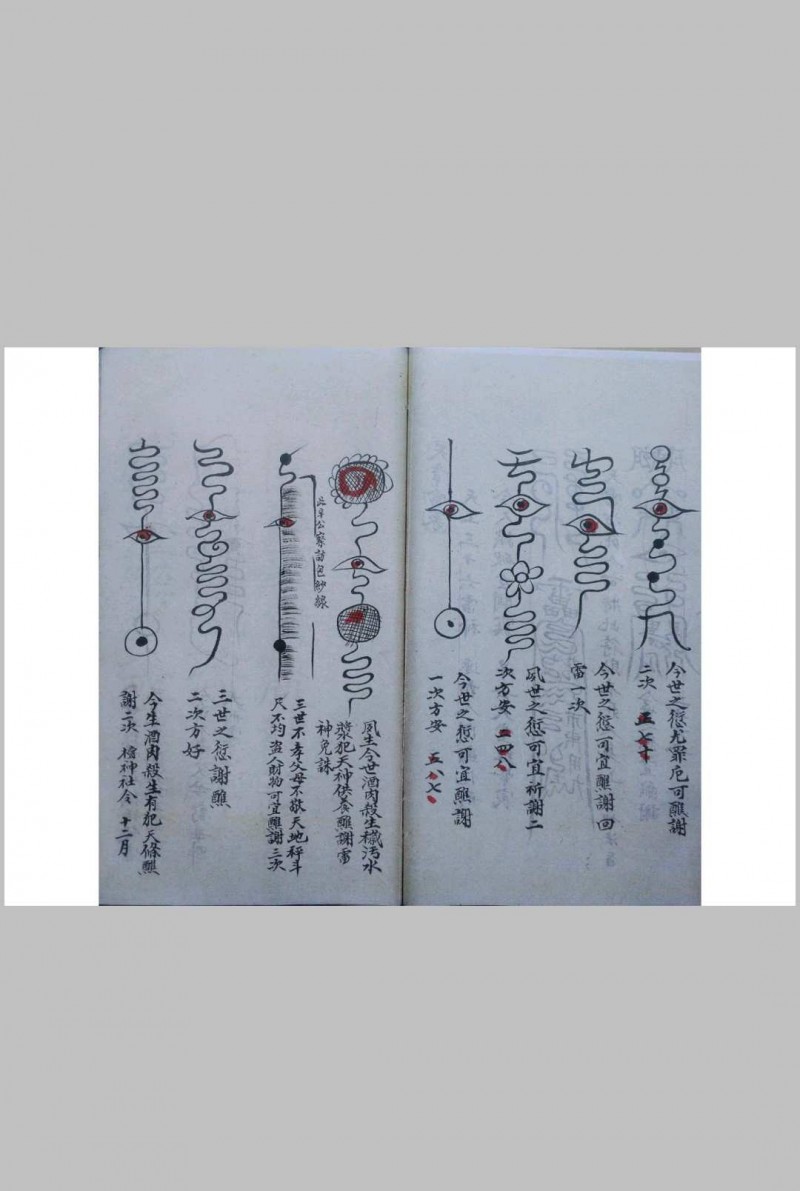 今世之愆尤罪戾可醮謝
二次 五七十
今世之愆可宜醮謝回
雷一次
夙世之愆可宜祈謝二
次方安 二四八
今世之愆可宜醮謝
一次方安 五八七
夙生今世酒肉殺生穢污水
漿犯天神供養醮謝雷
神免誅
三世不孝父母不敬天地秤斗
尺不均盜人財物可宜醮謝三次
三世之愆謝醮
二次方好
今生酒肉殺生有犯天條醮
謝二次 神社令 十二月